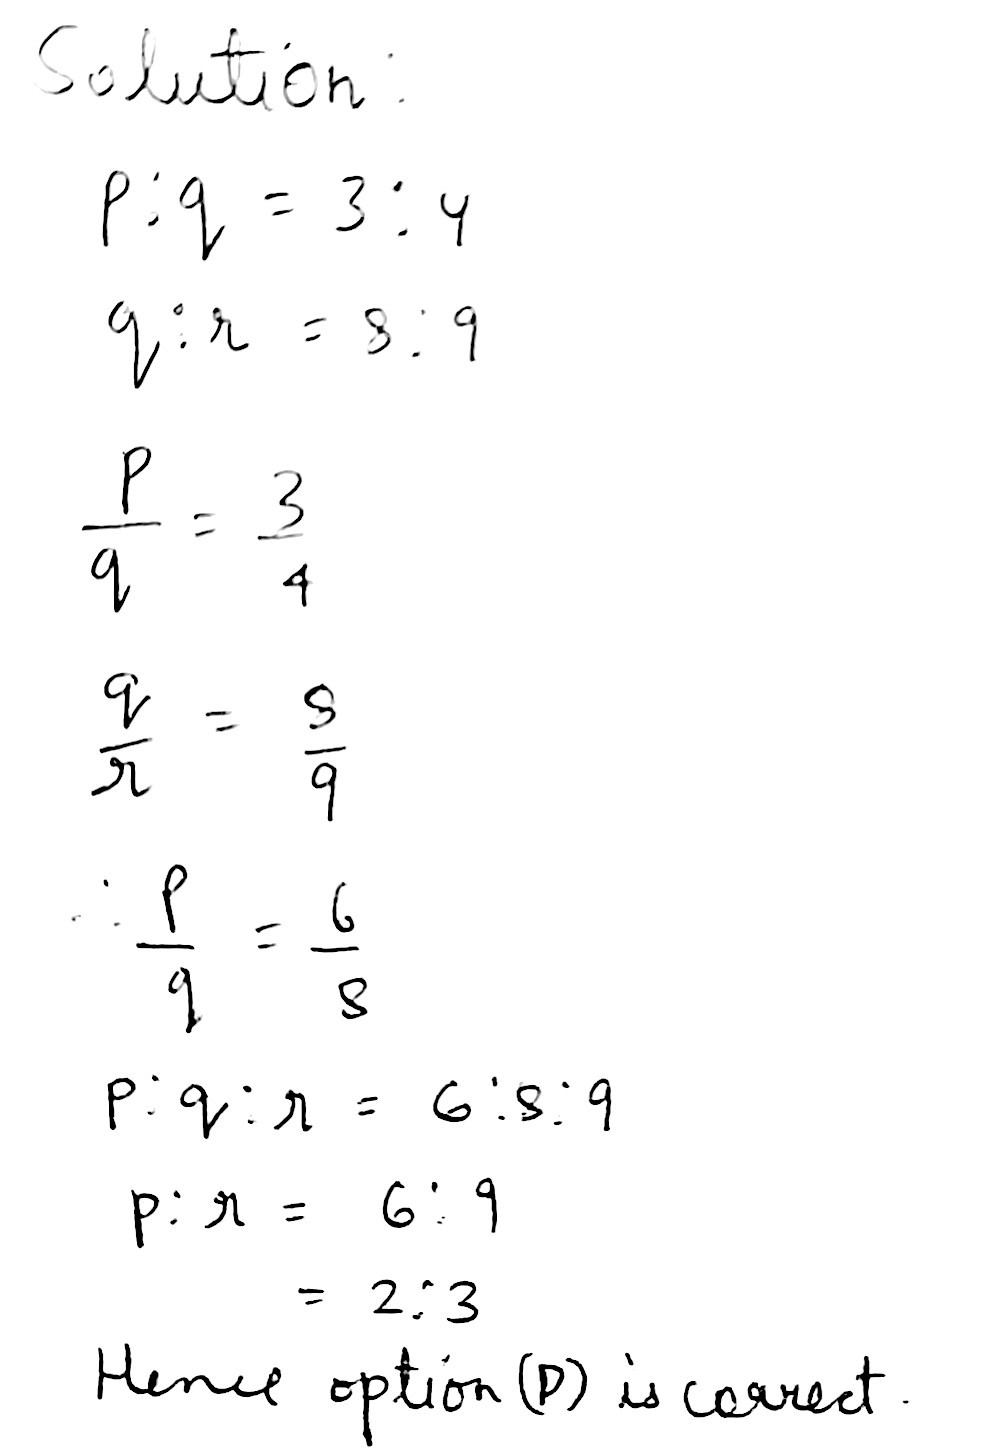 Solution:
p:q = 3:4
q:r = 8:9
p/q = 3/4
q/r = 8/9
∴ p/q = 6/8
p:q:r = 6:8:9
p:r = 6:9
= 2:3
Hence option (D) is correct.